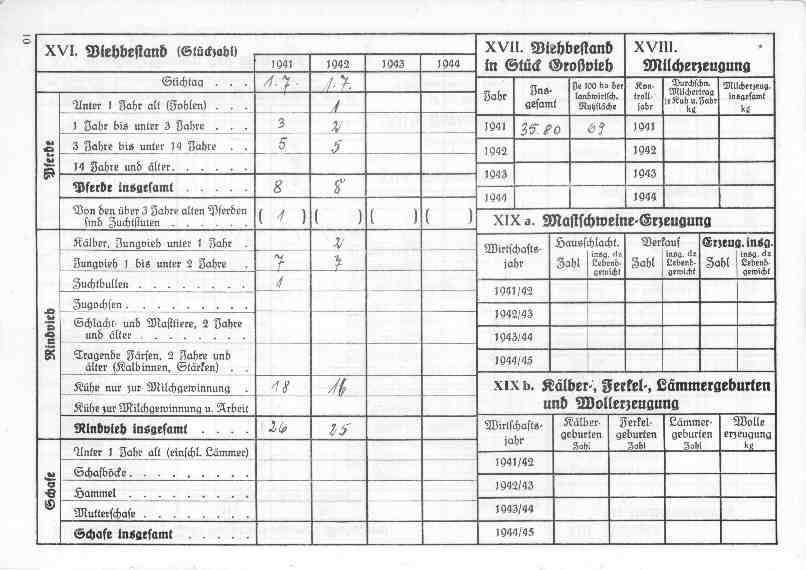 10
XVI. Viehbestand (Stückzahl)
1941 1942 1943 1944
Stichtag . . . 1.7. 1.7.
Pferde
Unter 1 Jahr alt (Fohlen) . . . 1
1 Jahr bis unter 3 Jahre . . . 3 2
3 Jahre bis unter 14 Jahre . . 5 5
14 Jahre und älter. . . . . .
Pferde insgesamt . . . . . 8 8
Von den über 3 Jahre alten Pferden
sind Zuchtstuten . . . . . . ( 1 ) ( ) ( ) ( )
Rindvieh
Kälber, Jungvieh unter 1 Jahr . 2
Jungvieh 1 bis unter 2 Jahre . 7 7
Zuchtbullen . . . . . . . . 1
Zugochsen . . . . . . . . .
Schlacht- und Masttiere, 2 Jahre
und älter . . . . . . . .
Tragende Färsen, 2 Jahre und
älter (Kalbinnen, Stärken) . .
Kühe nur zur Milchgewinnung . 18 16
Kühe zur Milchgewinnung u. Arbeit
Rindvieh insgesamt . . . . 26 25
Schafe
Unter 1 Jahr alt (einschl. Lämmer)
Schafböcke . . . . . . . .
Hammel . . . . . . . . .
Mutterschafe . . . . . . . .
Schafe insgesamt . . . . .
XVII. Viehbestand
in Stück Großvieh
Jahr
Ins-
gesamt
Je 100 ha der
landwirtsch.
Nutzfläche
1941 35.80 69
1942
1943
1944
XVIII.
Milcherzeugung
Kon-
troll-
jahr
Durchschn.
Milchertrag
je Kuh u. Jahr
kg
Milcherzeug.
insgesamt
kg
1941
1942
1943
1944
XIX a. Mastschweine-Erzeugung
Wirtschafts-
jahr
Hausschlacht. Verkauf Erzeug. insg.
Zahl
insg. dz
Lebend-
gewicht
Zahl
insg. dz
Lebend-
gewicht
Zahl
insg. dz
Lebend-
gewicht
1941/42
1942/43
1943/44
1944/45
XIX b. Kälber-, Ferkel-, Lämmergeburten
und Wollerzeugung
Wirtschafts-
jahr
Kälber-
geburten
Zahl
Ferkel-
geburten
Zahl
Lämmer-
geburten
Zahl
Wolle
erzeugung
kg
1941/42
1942/43
1943/44
1944/45